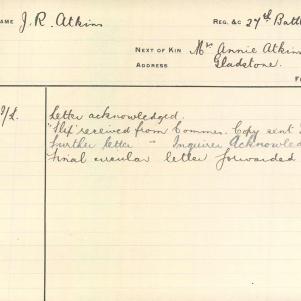 NAME J. R. Atkins REG. &c 27th Batt
NEXT OF KIN Mrs Annie Atkins
ADDRESS Gladstone.
Letter acknowledged.
Slip received from Commes. Copy sent
Further letter - Inquirer Acknowled
Final circular letter forwarded